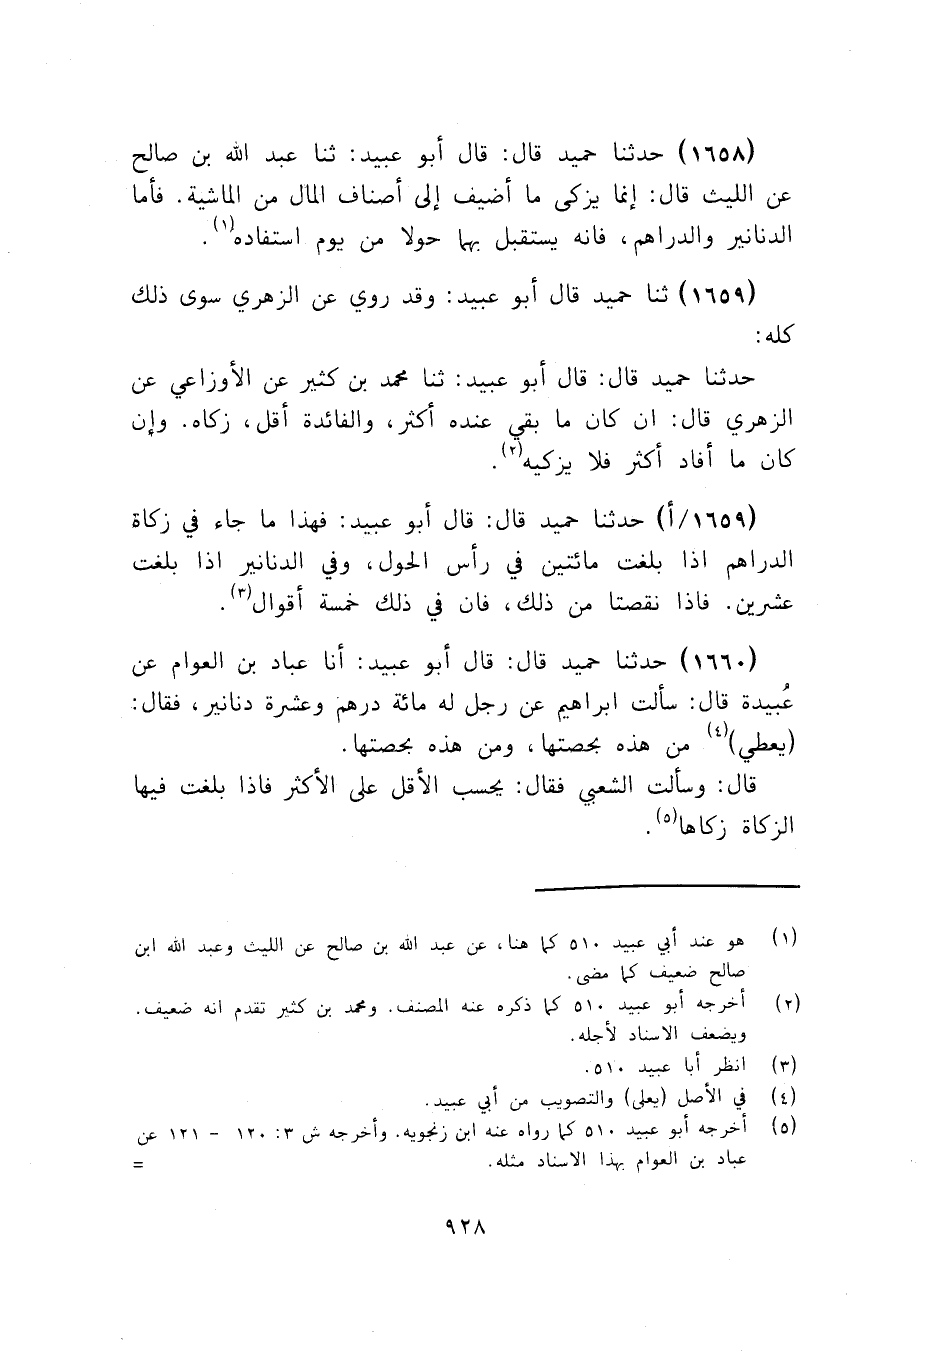 (١٦٥٨) حدثنا حميد قال: قال أبو عبيد: ثنا عبد الله بن صالح
عن الليث قال: إنما يزكى ما أضيف إلى أصناف المال من الماشية. فأما
الدنانير والدراهم، فانه يستقبل بها حولا من يوم استفاده(١).
(١٦٥٩) ثنا حميد قال أبو عبيد: وقد روي عن الزهري سوى ذلك
كله:
حدثنا حميد قال: قال أبو عبيد: ثنا محمد بن كثير عن الأوزاعي عن
الزهري قال: ان كان ما بقي عنده أكثر، والفائدة أقل، زكاه. وإن
كان ما أفاد أكثر فلا يزكيه(٢).
(١٦٥٩/أ) حدثنا حميد قال: قال أبو عبيد: فهذا ما جاء في زكاة
الدراهم اذا بلغت مائتين في رأس الحول، وفي الدنانير اذا بلغت
عشرين. فاذا نقصتا من ذلك، فان في ذلك خمسة أقوال(٣).
(١٦٦٠) حدثنا حميد قال: قال أبو عبيد: أنا عباد بن العوام عن
عُبيدة قال: سألت ابراهيم عن رجل له مائة درهم وعشرة دنانير، فقال:
(يعطي)(٤) من هذه بحصتها، ومن هذه بحصتها.
قال: وسألت الشعبي فقال: يحسب الأقل على الأكثر فاذا بلغت فيها
الزكاة زكاها(٥).
(١) هو عند أبي عبيد ٥١٠ كما هنا، عن عبد الله بن صالح عن الليث وعبد الله ابن
صالح ضعيف كما مضى.
(٢) أخرجه أبو عبيد ٥١٠ كما ذكره عنه المصنف. ومحمد بن كثير تقدم انه ضعيف.
ويضعف الاسناد لأجله.
(٣) انظر أبا عبيد ٥١٠.
(٤) في الأصل (يعلى) والتصويب من أبي عبيد.
(٥) أخرجه أبو عبيد ٥١٠ كما رواه عنه ابن زنجويه. وأخرجه ش ٣: ١٢٠ - ١٢١ عن
عباد بن العوام بهذا الاسناد مثله. =
٩٢٨